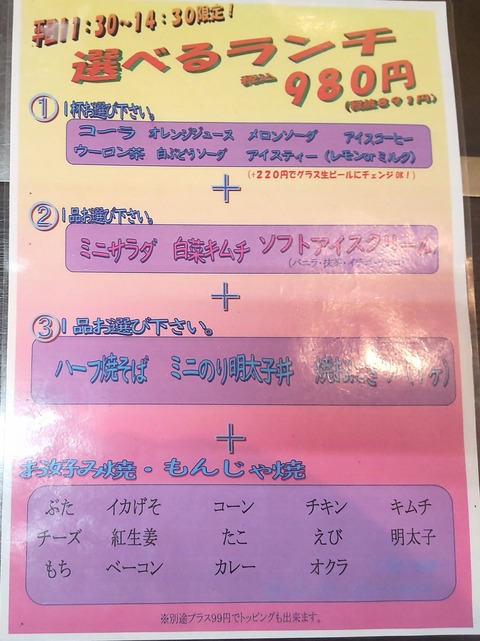 平日11：30～14：30限定！
選べるランチ
税込 980円
(税抜891円)
① 1杯お選び下さい。
コーラ オレンジジュース メロンソーダ アイスコーヒー
ウーロン茶 白ぶどうソーダ アイスティー（レモンorミルク）
(+220円でグラス生ビールにチェンジOK！)
＋
② 1品お選び下さい。
ミニサラダ 白菜キムチ ソフトアイスクリーム
(バニラ・抹茶・
＋
③ 1品お選び下さい。
ハーフ焼そば ミニのり明太子丼
＋
お好み焼・もんじゃ焼
ぶた イカげそ コーン チキン キムチ
チーズ 紅生姜 たこ えび 明太子
もち ベーコン カレー オクラ
※別途プラス99円でトッピングも出来ます。